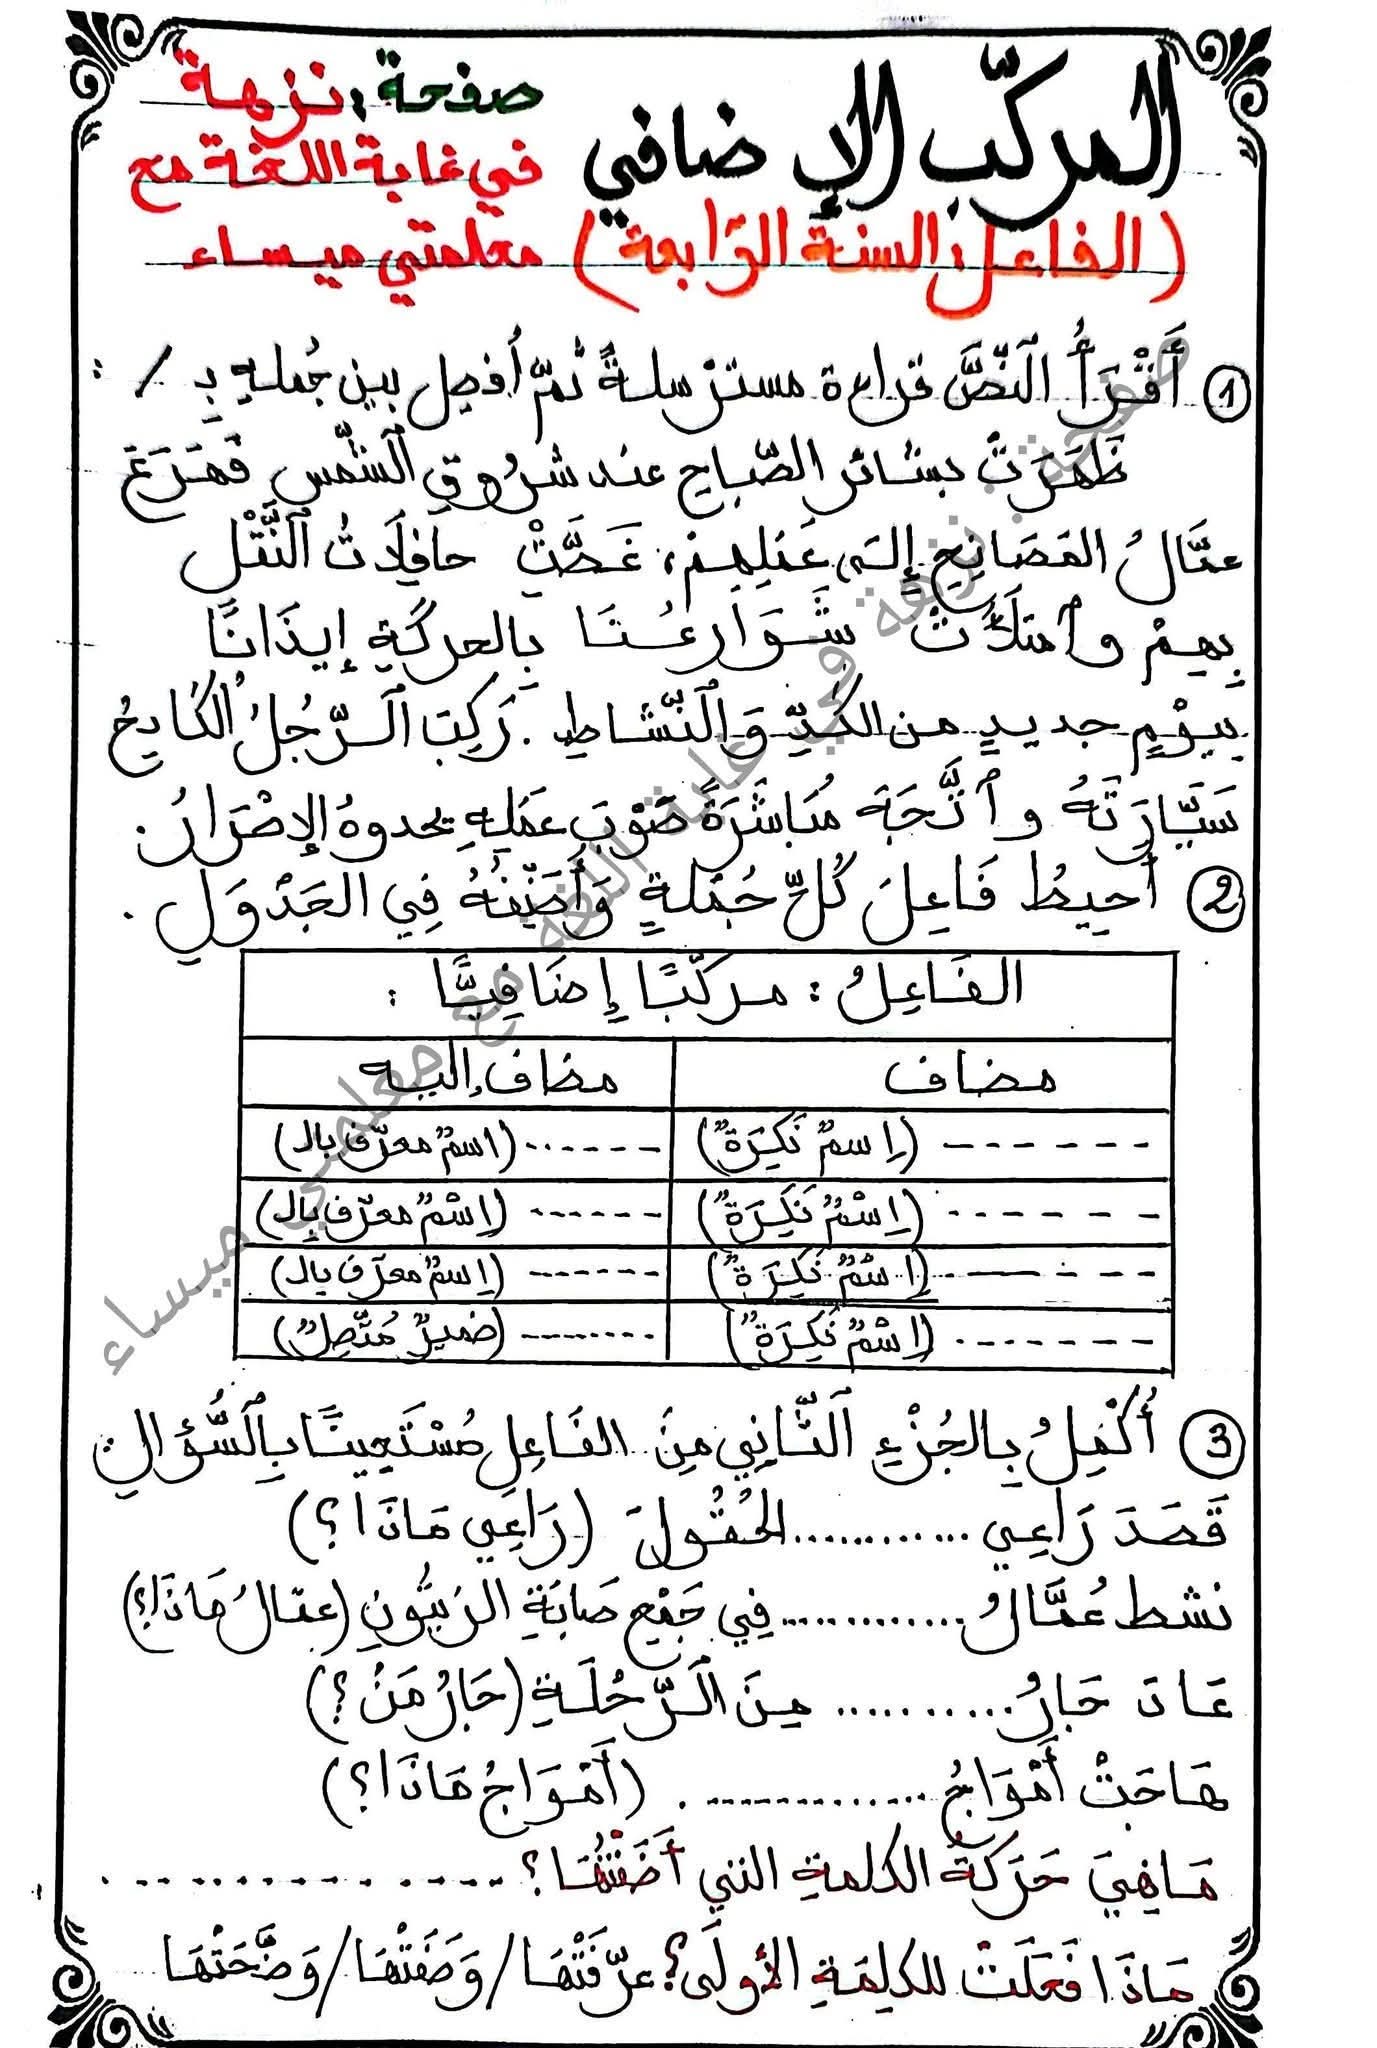 المركّب الإضافي
(الفاعل: السنة الرّابعة)
صفحة: نزهة
في غابة اللغة مع
معلمتي ميساء
① أَقْرَأُ ٱلنَّصَّ قراءة مسترسلةً ثمّ أُفصِل بين جُمله بِـ / :
ظَهَرَتْ بشائر الصّباحِ عند شُروقِ ٱلشّمس فَهَرَعَ
عمَّالُ المَصَانِعِ إلى عَمَلِهِمْ، غَصَّتْ حافِلَاتُ ٱلنَّقْلِ
بِهِمْ وٱمتلَأَتْ شَوَارِعُنَا بِالحركَةِ إيذَانًا
بِيَوْمٍ جديدٍ من الكَدِّ وَٱلنّشاطِ. رَكِبَ ٱلرَّجُلُ الكَادِحُ
سَيّارَتَهُ وٱتَّجَهَ مُبَاشَرَةً صَوْبَ عَمَلِهِ يحدوهُ الإصْرَارُ.
② أُحِيطُ فَاعِلَ كُلِّ جُمْلَةٍ وَأُصَنِّفُهُ فِي الجَدْوَلِ.
الفَاعِلُ: مركّبًا إِضَافِيًّا :
مضاف مضاف إليه
------ (اِسمٌ نَكِرَةٌ) ------ (اسمٌ معرّف بال)
------ (اِسْمٌ نَكِرَةٌ) ------ (اِسْمٌ معرّف بِال)
------ (اِسْمٌ نَكِرَةٌ) ------ (اِسمٌ معرّف بال)
------ (اِسْمٌ نَكِرَةٌ) ------ (ضميرٌ مُتّصِلٌ)
③ أُكْمِلُ بِالجُزْءِ ٱلثَّانِي مِنَ الفَاعِلِ مُسْتَعِينًا بِٱلسُّؤَالِ
قَصَدَ رَاعِي ............ الحُقُولَ (رَاعِي مَاذَا؟)
نشط عُمَّالُ ............ فِي جَمْعِ صَابَةِ الزيتُونِ (عمّالُ مَاذَا؟)
عَادَ جَارُ .......... مِنَ ٱلرِّحْلَةِ (جَارُ مَنْ؟)
هَاجَتْ أَمْوَاجُ ............. . (أَمْوَاجُ مَاذَا؟)
مَا هِيَ حَرَكَةُ الكلمةِ التي أَضَفْتُهَا؟ ..................
مَاذَا فَعَلَتْ للكلِمَةِ الأُولَى؟ عرّفَتْهَا/ وَصَفَتْهَا/ وَضَّحَتْهَا
صفحة: نزهة في غابة اللغة مع معلمتي ميساء